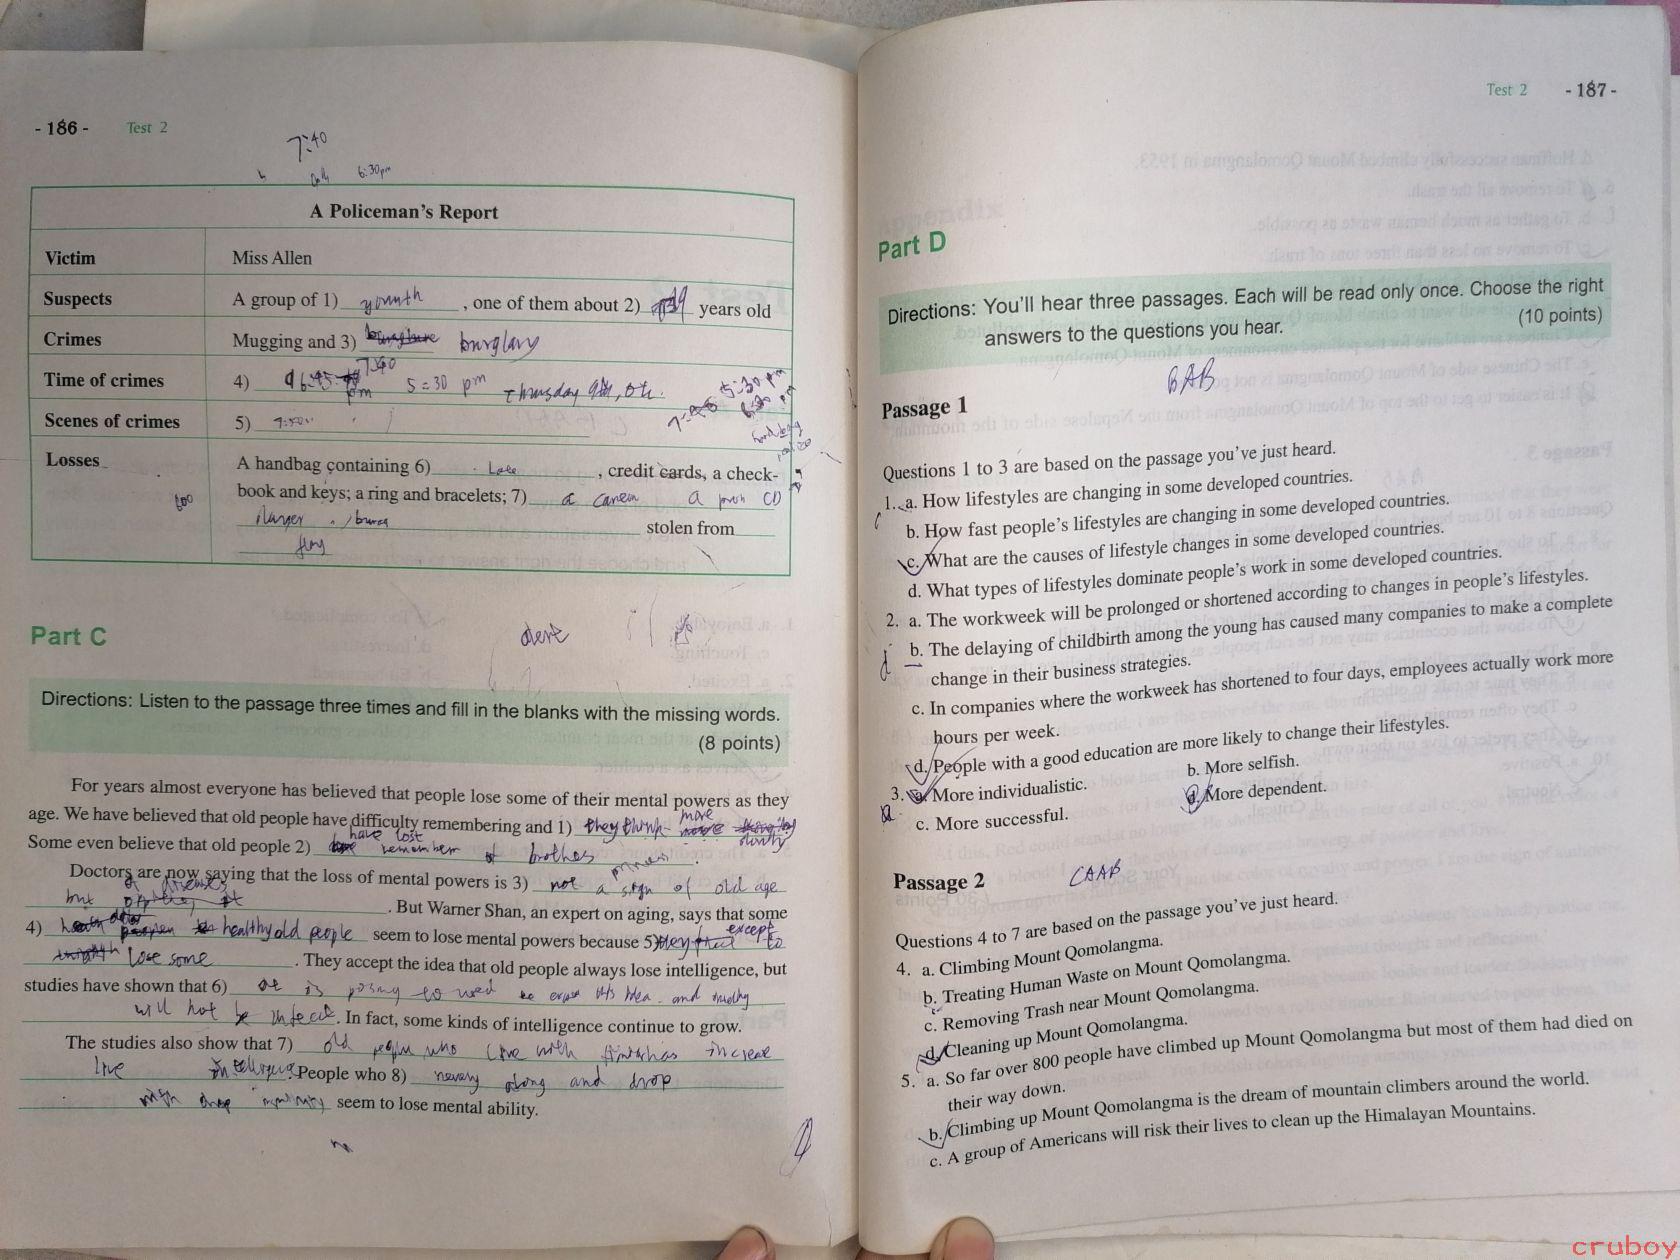 - 186 - Test 2
7:40
6:30pm
A Policeman's Report
Victim Miss Allen
Suspects A group of 1) youmth , one of them about 2) years old
Crimes Mugging and 3) burglary
7:40
Time of crimes 4) pm 5=30 pm Thursday
5:30 pm
Scenes of crimes 5)
Losses A handbag containing 6) , credit cards, a check-
book and keys; a ring and bracelets; 7) a a CD
600
stolen from
Part C
Directions: Listen to the passage three times and fill in the blanks with the missing words.
(8 points)
For years almost everyone has believed that people lose some of their mental powers as they
more
age. We have believed that old people have difficulty remembering and 1) they think
have lost
Some even believe that old people 2) remember of brothes .
Doctors are now saying that the loss of mental powers is 3) not a sign of old age
of diseases
but . But Warner Shan, an expert on aging, says that some
except
4) healthy old people seem to lose mental powers because 5) they to
lose some . They accept the idea that old people always lose intelligence, but
studies have shown that 6) is to idea and
will not be . In fact, some kinds of intelligence continue to grow.
The studies also show that 7) old people who live with increase
live . People who 8) along and drop
drop seem to lose mental ability.
Test 2 - 187 -
Part D
Directions: You'll hear three passages. Each will be read only once. Choose the right
answers to the questions you hear. (10 points)
BAB
Passage 1
Questions 1 to 3 are based on the passage you've just heard.
1. a. How lifestyles are changing in some developed countries.
c
b. How fast people's lifestyles are changing in some developed countries.
c. What are the causes of lifestyle changes in some developed countries.
d. What types of lifestyles dominate people's work in some developed countries.
2. a. The workweek will be prolonged or shortened according to changes in people's lifestyles.
d
b. The delaying of childbirth among the young has caused many companies to make a complete
change in their business strategies.
c. In companies where the workweek has shortened to four days, employees actually work more
hours per week.
d. People with a good education are more likely to change their lifestyles.
3. a. More individualistic. b. More selfish.
a
c. More successful. d. More dependent.
Passage 2 CAAB
Questions 4 to 7 are based on the passage you've just heard.
4. a. Climbing Mount Qomolangma.
b. Treating Human Waste on Mount Qomolangma.
c. Removing Trash near Mount Qomolangma.
d. Cleaning up Mount Qomolangma.
5. a. So far over 800 people have climbed up Mount Qomolangma but most of them had died on
their way down.
b. Climbing up Mount Qomolangma is the dream of mountain climbers around the world.
c. A group of Americans will risk their lives to clean up the Himalayan Mountains.
cruboy